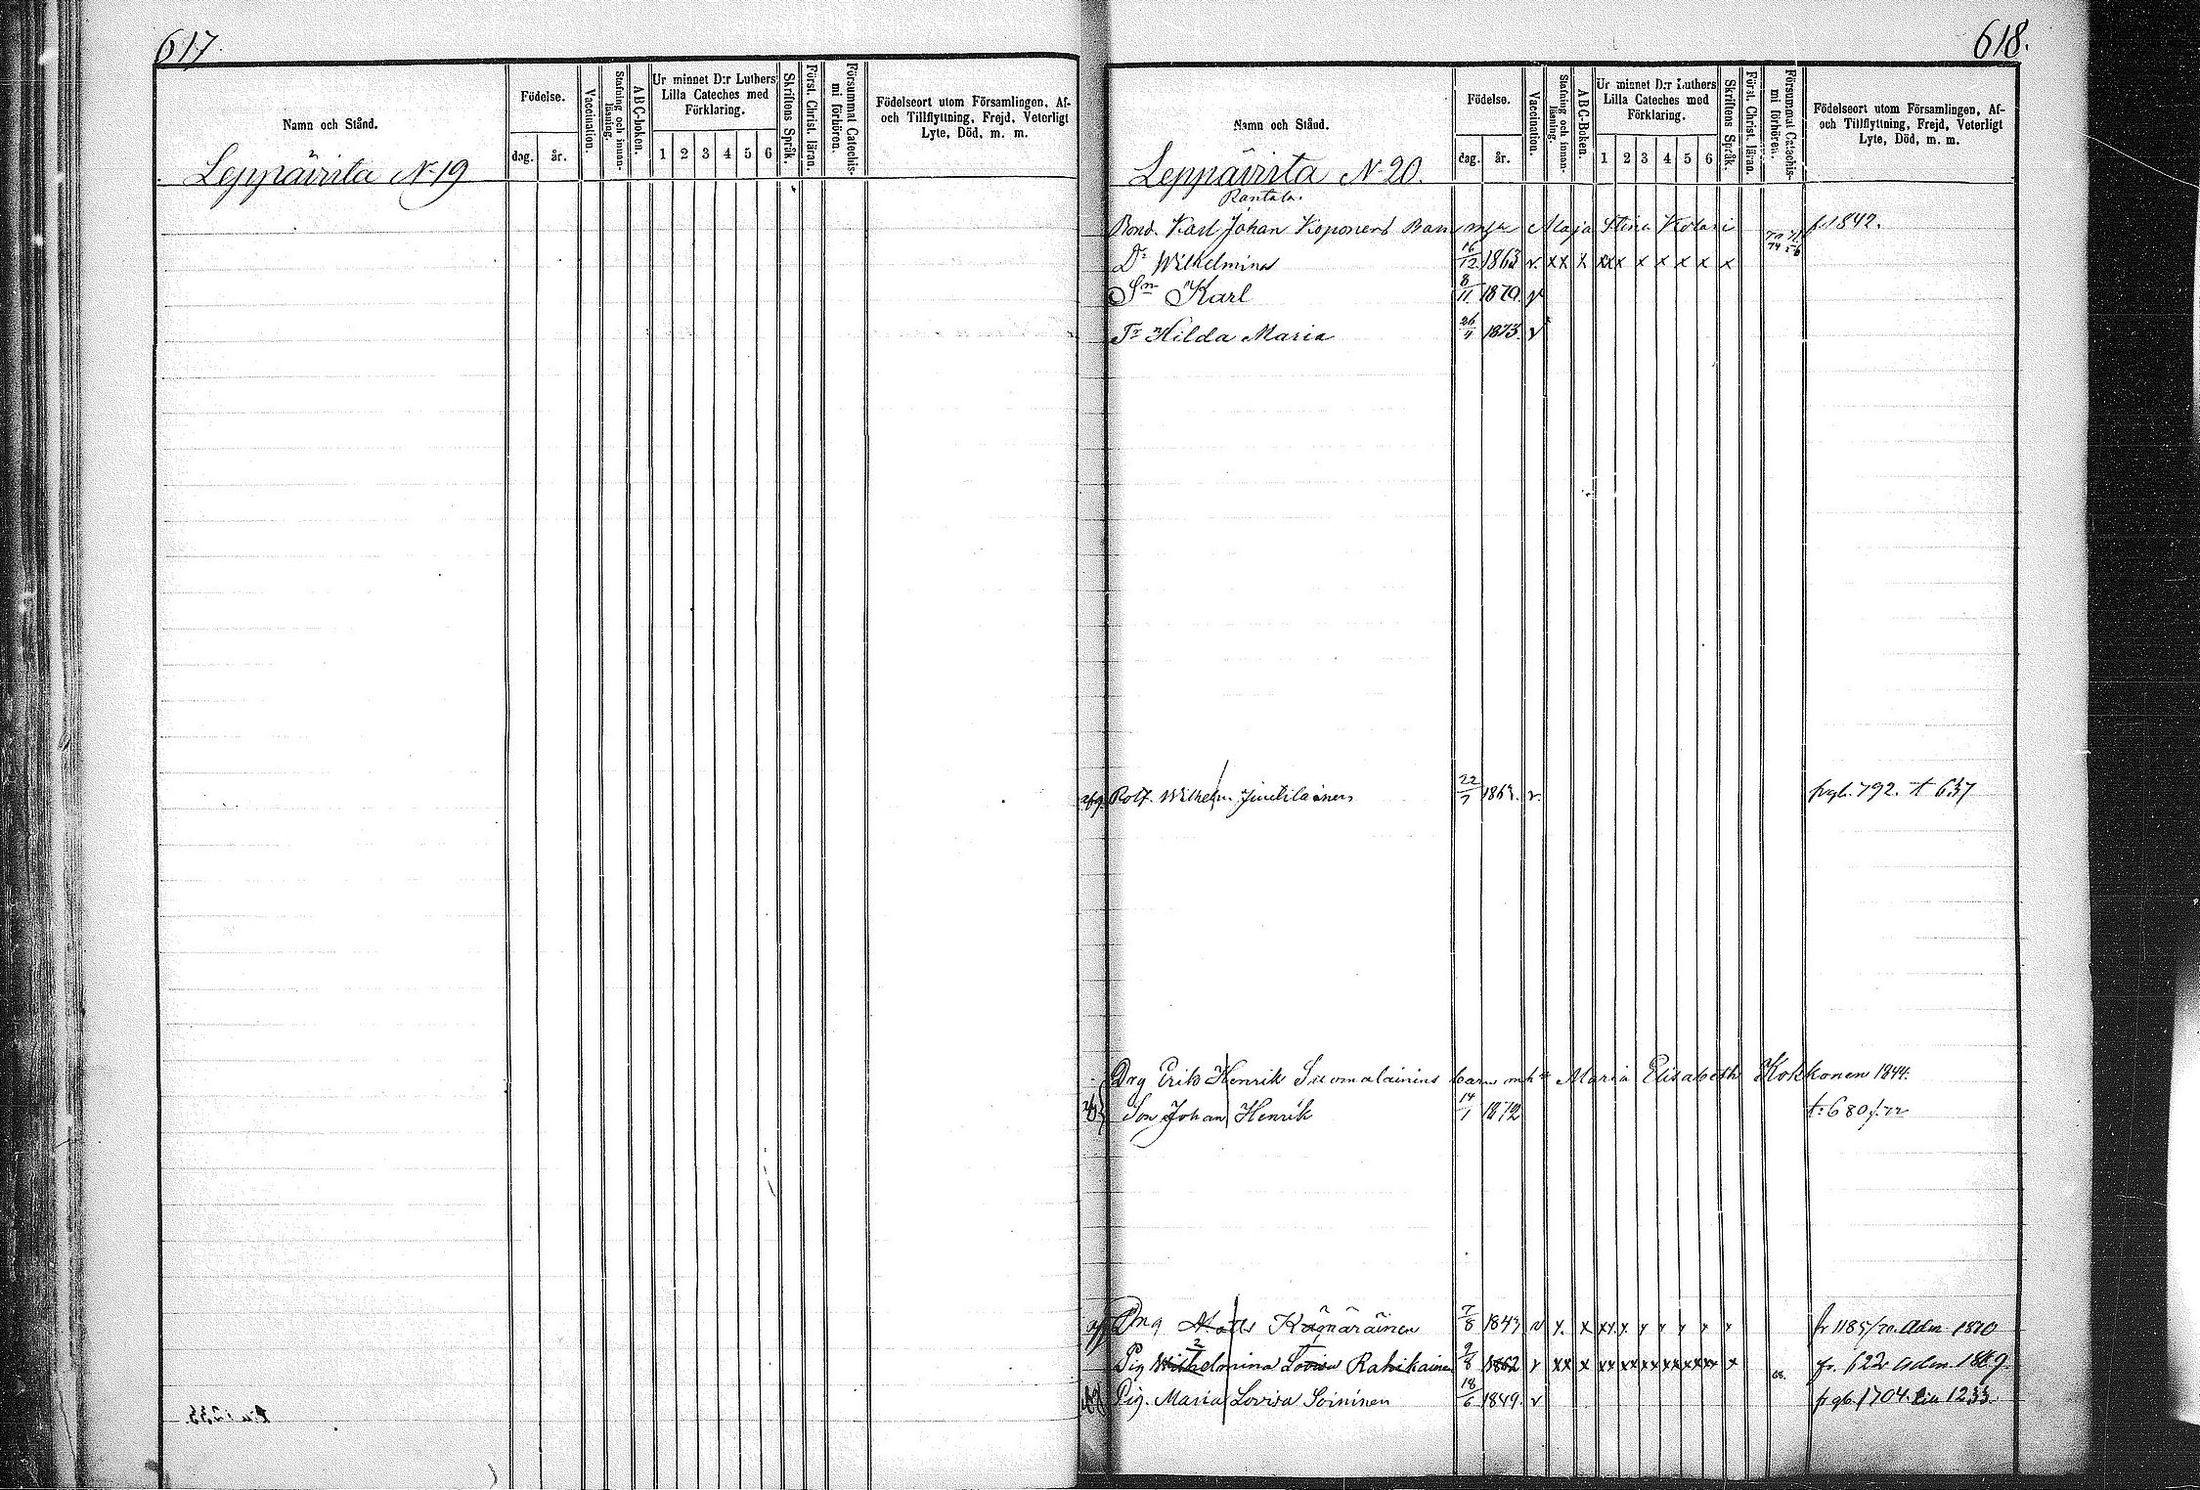 617.
Namn och Stånd.
Födelse.
dag.
år.
Vaccination.
Stafning och innan-
läsning.
ABC-boken.
Ur minnet D:r Luthers
Lilla Cateches med
Förklaring.
1 2 3 4 5 6
Skriftens Språk.
Först. Christ. läran.
Försummat Catechis-
mi förhören.
Födelseort utom Församlingen, Af-
och Tillflyttning, Frejd, Veterligt
Lyte, Död, m. m.
Leppävirta N 19
618.
Namn och Stånd.
Födelse.
dag.
år.
Vaccination.
Stafning och innan-
läsning.
ABC-Boken.
Ur minnet D:r Luthers
Lilla Cateches med
Förklaring.
1 2 3 4 5 6
Skriftens Språk.
Först. Christ. läran.
Försummat Catechis-
mi förhören.
Födelseort utom Församlingen, Af-
och Tillflyttning, Frejd, Veterligt
Lyte, Död, m. m.
Leppävirta N 20.
Rantala.
Bond. Karl Johan Koponens Barn Maja Stina 1842.
Dr Wilhelmina 16/12 1863 v. xx x xxx x x x x x
Sn Karl 8/11 1870 v
Dr Hilda Maria 26/4 1873 v
Wilhelm Juutilainen 22/7 1863. v. 792. t 637
Drg Erik Henrik Suomalainens barn Maria Elisabeth Kokkonen 1844.
Son Johan Henrik 14/1 1872 t. 680
Drg Matts Kämäräinen 7/8 1843 fr 1185/70. Adm 1870
Pig Wilhelmina Lovisa Rahikainen 9/8 1862 fr. 622 Adm. 1869
Pig. Maria Lovisa Soininen 18/6 1849. v 1704. 1233.